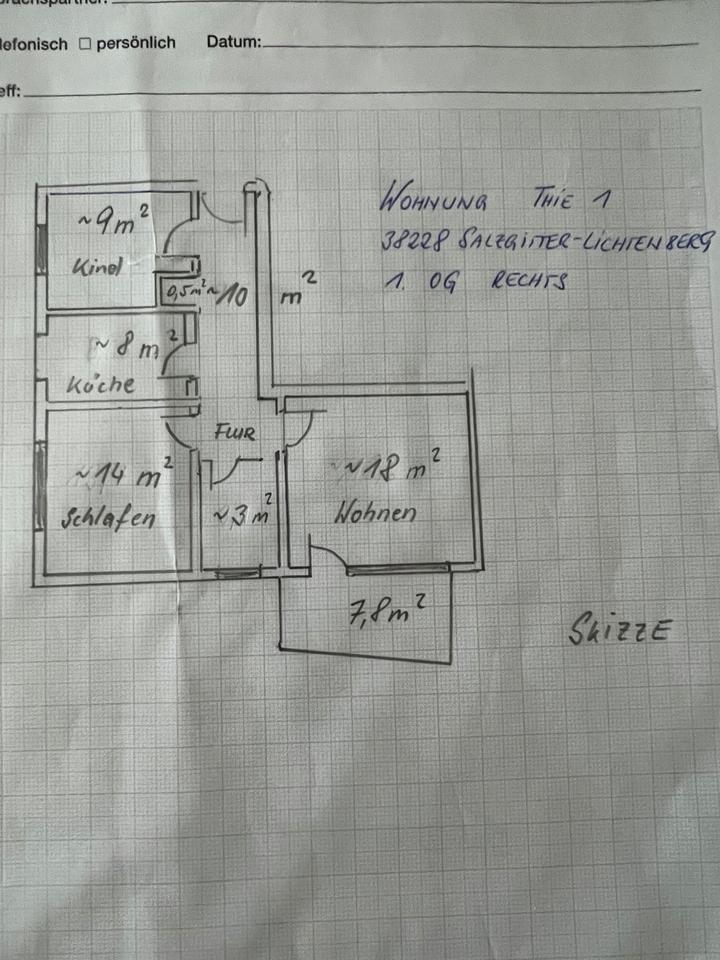 lefonisch ☐ persönlich Datum:
eff:
WOHNUNG THIE 1
38228 SALZGITTER-LICHTENBERG
1. OG RECHTS
~9m²
Kind
0,5m² ~10 m²
~8 m²
Küche
FLUR
~14 m²
Schlafen
~3 m²
~18 m²
Wohnen
7,8m²
SKIZZE